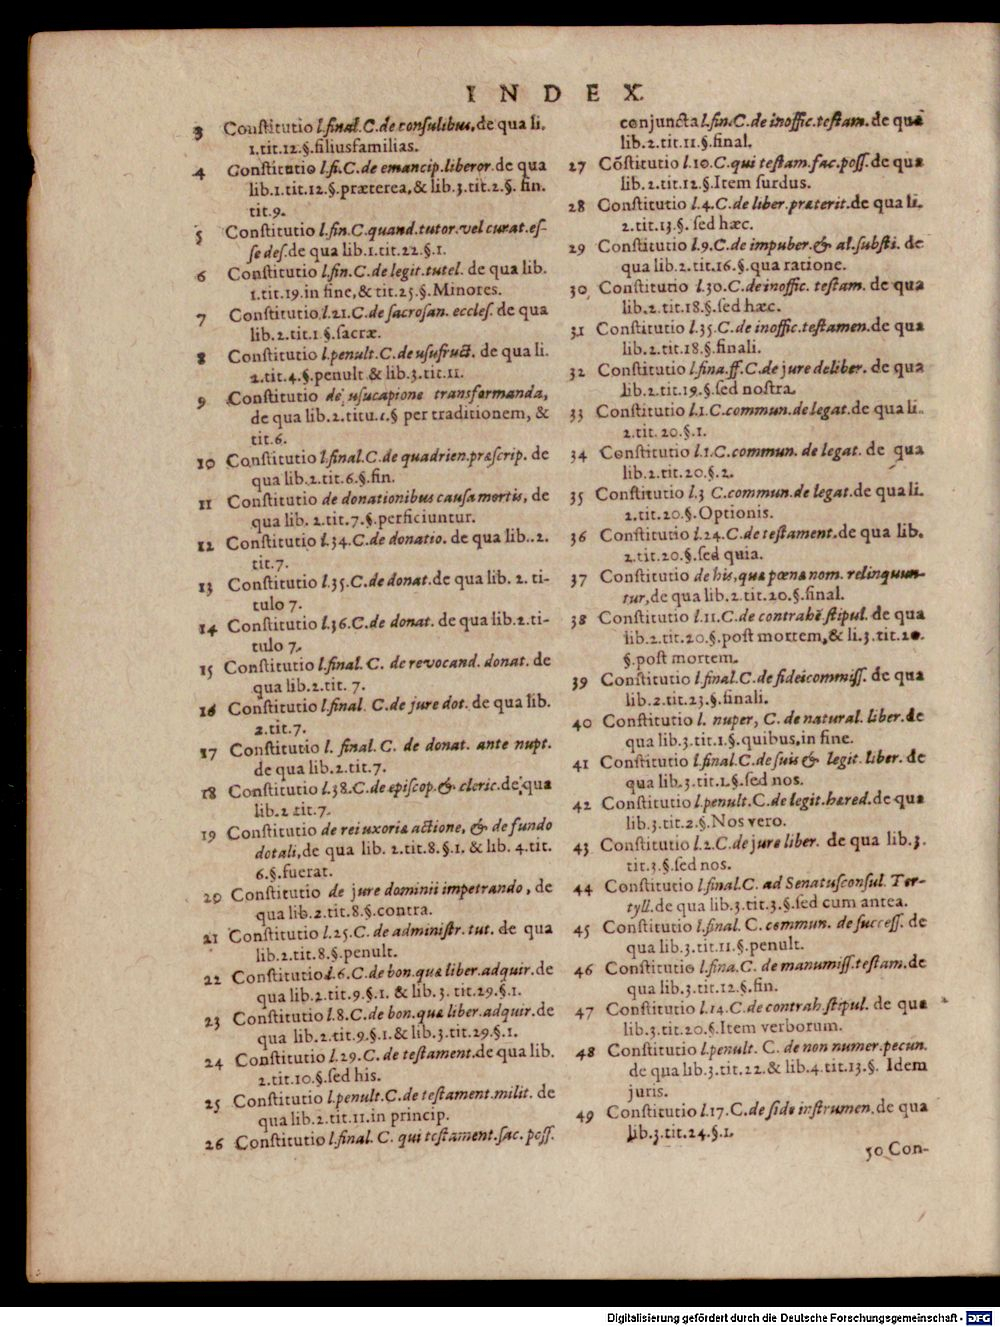 INDEX.
3 Constitutio l.final.C.de consulibus, de qua li.
1.tit.12.§.filiusfamilias.
4 Constitutio l.fi.C.de emancip.liberor.de qua
lib.1.tit.12.§.præterea,& lib.3.tit.2.§. fin.
tit.9.
5 Constitutio l.fin.C.quand.tutor.vel curat.es-
se des.de qua lib.1.tit.22.§.1.
6 Constitutio l.fin.C.de legit.tutel. de qua lib.
1.tit.19.in fine,& tit.25.§.Minores.
7 Constitutio l.21.C.de sacrosan. eccles. de qua
lib.2.tit.1.§.sacræ.
8 Constitutio l.penult.C.de usufruct. de qua li.
2.tit.4.§.penult & lib.3.tit.11.
9 Constitutio de usucapione transformanda,
de qua lib.2.titu.1.§ per traditionem, &
tit.6.
10 Constitutio l.final.C.de quadrien.præscrip. de
qua lib.2.tit.6.§.fin.
11 Constitutio de donationibus causa mortis, de
qua lib. 2.tit.7.§.perficiuntur.
12 Constitutio l.34.C.de donatio. de qua lib..2.
tit.7.
13 Constitutio l.35.C.de donat.de qua lib. 2. ti-
tulo 7.
14 Constitutio l.36.C.de donat. de qua lib.2.ti-
tulo 7.
15 Constitutio l.final. C. de revocand. donat. de
qua lib.2.tit. 7.
16 Constitutio l.final. C.de jure dot. de qua lib.
2.tit.7.
17 Constitutio l. final. C. de donat. ante nupt.
de qua lib.2.tit.7.
18 Constitutio l.38.C.de episcop.& cleric.de qua
lib.2 tit.7.
19 Constitutio de rei uxoriæ actione, & de fundo
dotali,de qua lib. 2.tit.8.§.1. & lib. 4.tit.
6.§.fuerat.
20 Constitutio de jure dominii impetrando, de
qua lib.2.tit.8.§.contra.
21 Constitutio l.25.C. de administr. tut. de qua
lib.2.tit.8.§.penult.
22 Constitutio l.6.C.de bon.quæ liber.adquir.de
qua lib.2.tit.9.§.1. & lib.3. tit.29.§.1.
23 Constitutio l.8.C.de bon.quæ liber.adquir.de
qua lib.2.tit.9.§.1.& lib.3.tit.29.§.1.
24 Constitutio l.29.C. de testament.de qua lib.
2.tit.10.§.sed his.
25 Constitutio l.penult.C.de testament.milit. de
qua lib.2.tit.11.in princip.
26 Constitutio l.final. C. qui testament.fac. poss.
conjuncta l.fin.C.de inoffic.testam. de qua
lib.2.tit.11.§.final.
27 Cōstitutio l.10.C.qui testam.fac.poss.de qua
lib.2.tit.12.§.Item surdus.
28 Constitutio l.4.C.de liber.præterit.de qua li.
2.tit.13.§. sed hæc.
29 Constitutio l.9.C.de impuber.& al.substi. de
qua lib.2.tit.16.§.qua ratione.
30 Constitutio l.30.C.de inoffic. testam. de qua
lib.2.tit.18.§.sed hæc.
31 Constitutio l.35.C.de inoffic.testamen.de qua
lib.2.tit.18.§.finali.
32 Constitutio l.fina.ff.C.de jure deliber. de qua
lib.2.tit.19.§.sed nostra.
33 Constitutio l.1.C.commun.de legat.de qua li.
2.tit. 20.§.1.
34 Constitutio l.1.C.commun. de legat. de qua
lib.2.tit.20.§.2.
35 Constitutio l.3 C.commun.de legat.de qua li.
2.tit.20.§.Optionis.
36 Constitutio l.24.C.de testament.de qua lib.
2.tit.20.§.sed quia.
37 Constitutio de his,quæ pœnæ nom. relinquun-
tur,de qua lib.2.tit.20.§.final.
38 Constitutio l.11.C.de contrahē.stipul. de qua
lib.2.tit.20.§.post mortem,& li.3.tit.20.
§.post mortem.
39 Constitutio l.final.C.de fideicommiss. de qua
lib.2.tit.23.§.finali.
40 Constitutio l. nuper, C. de natural. liber.de
qua lib.3.tit.1.§.quibus,in fine.
41 Constitutio l.final.C.de suis & legit. liber. de
qua lib.3.tit.1.§.sed nos.
42 Constitutio l.penult.C.de legit.hæred.de qua
lib.3.tit.2.§.Nos vero.
43 Constitutio l.2.C.de jure liber. de qua lib.3.
tit.3.§.sed nos.
44 Constitutio l.final.C. ad Senatusconsul. Ter-
tyll.de qua lib.3.tit.3.§.sed cum antea.
45 Constitutio l.final. C. commun. de success. de
qua lib.3.tit.11.§.penult.
46 Constitutio l.fina.C. de manumiss.testam.de
qua lib.3.tit.12.§.fin.
47 Constitutio l.14.C.de contrah.stipul. de qua
lib.3.tit.20.§.Item verborum.
48 Constitutio l.penult. C. de non numer.pecun.
de qua lib.3.tit.22.& lib.4.tit.13.§. Idem
juris.
49 Constitutio l.17.C.de fide instrumen.de qua
lib.3.tit.24.§.1.
50 Con-
Digitalisierung gefördert durch die Deutsche Forschungsgemeinschaft - DFG